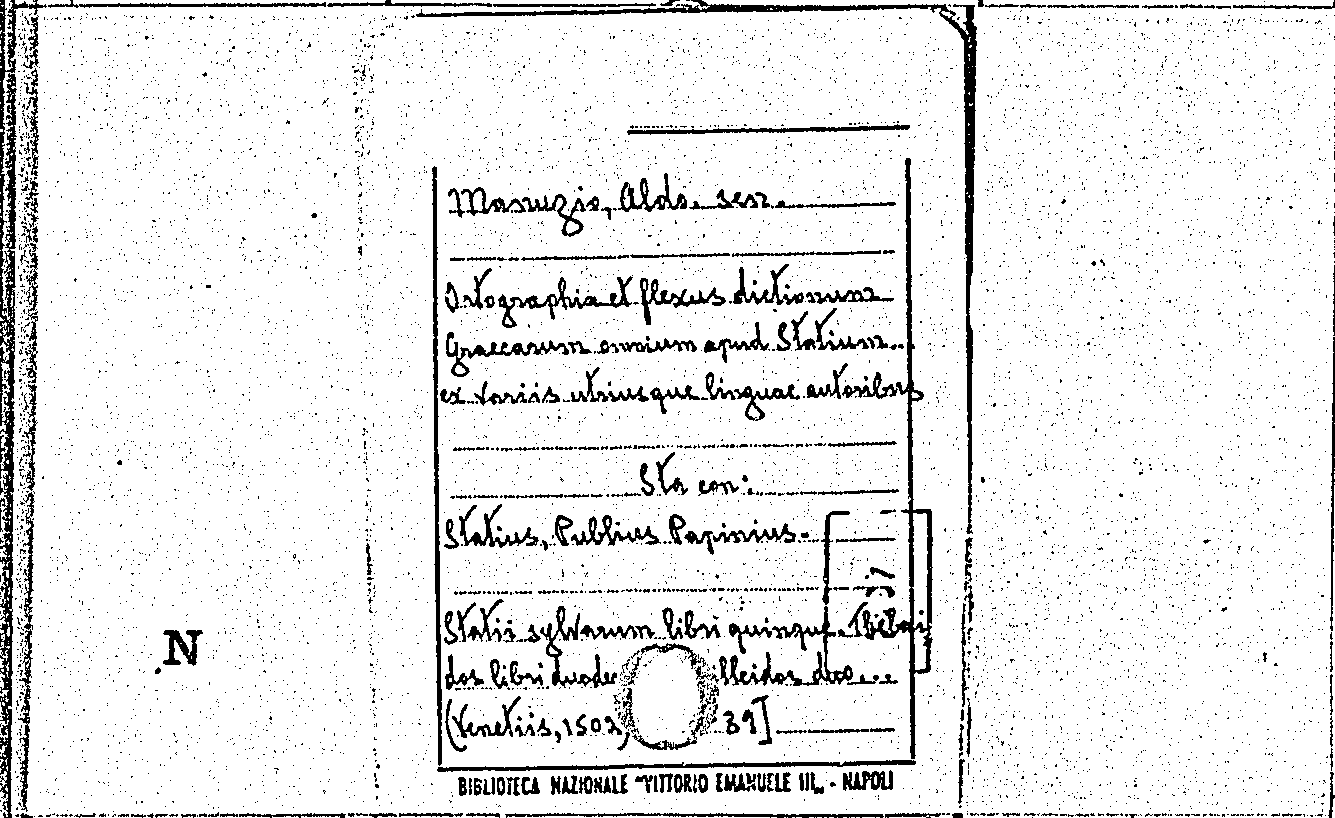 Manuzio, Aldo. sen.
Ortographia et flexus dictionum
Graecarum omnium apud Statium...
ex variis utriusque linguae autoribus
Sta con:
Statius, Publius Papinius.
Statii sylvarum libri quinque. Thebai
dos libri duode illeidos duo...
(Venetiis, 1502, 39]
N
BIBLIOTECA NAZIONALE "VITTORIO EMANUELE III„ - NAPOLI